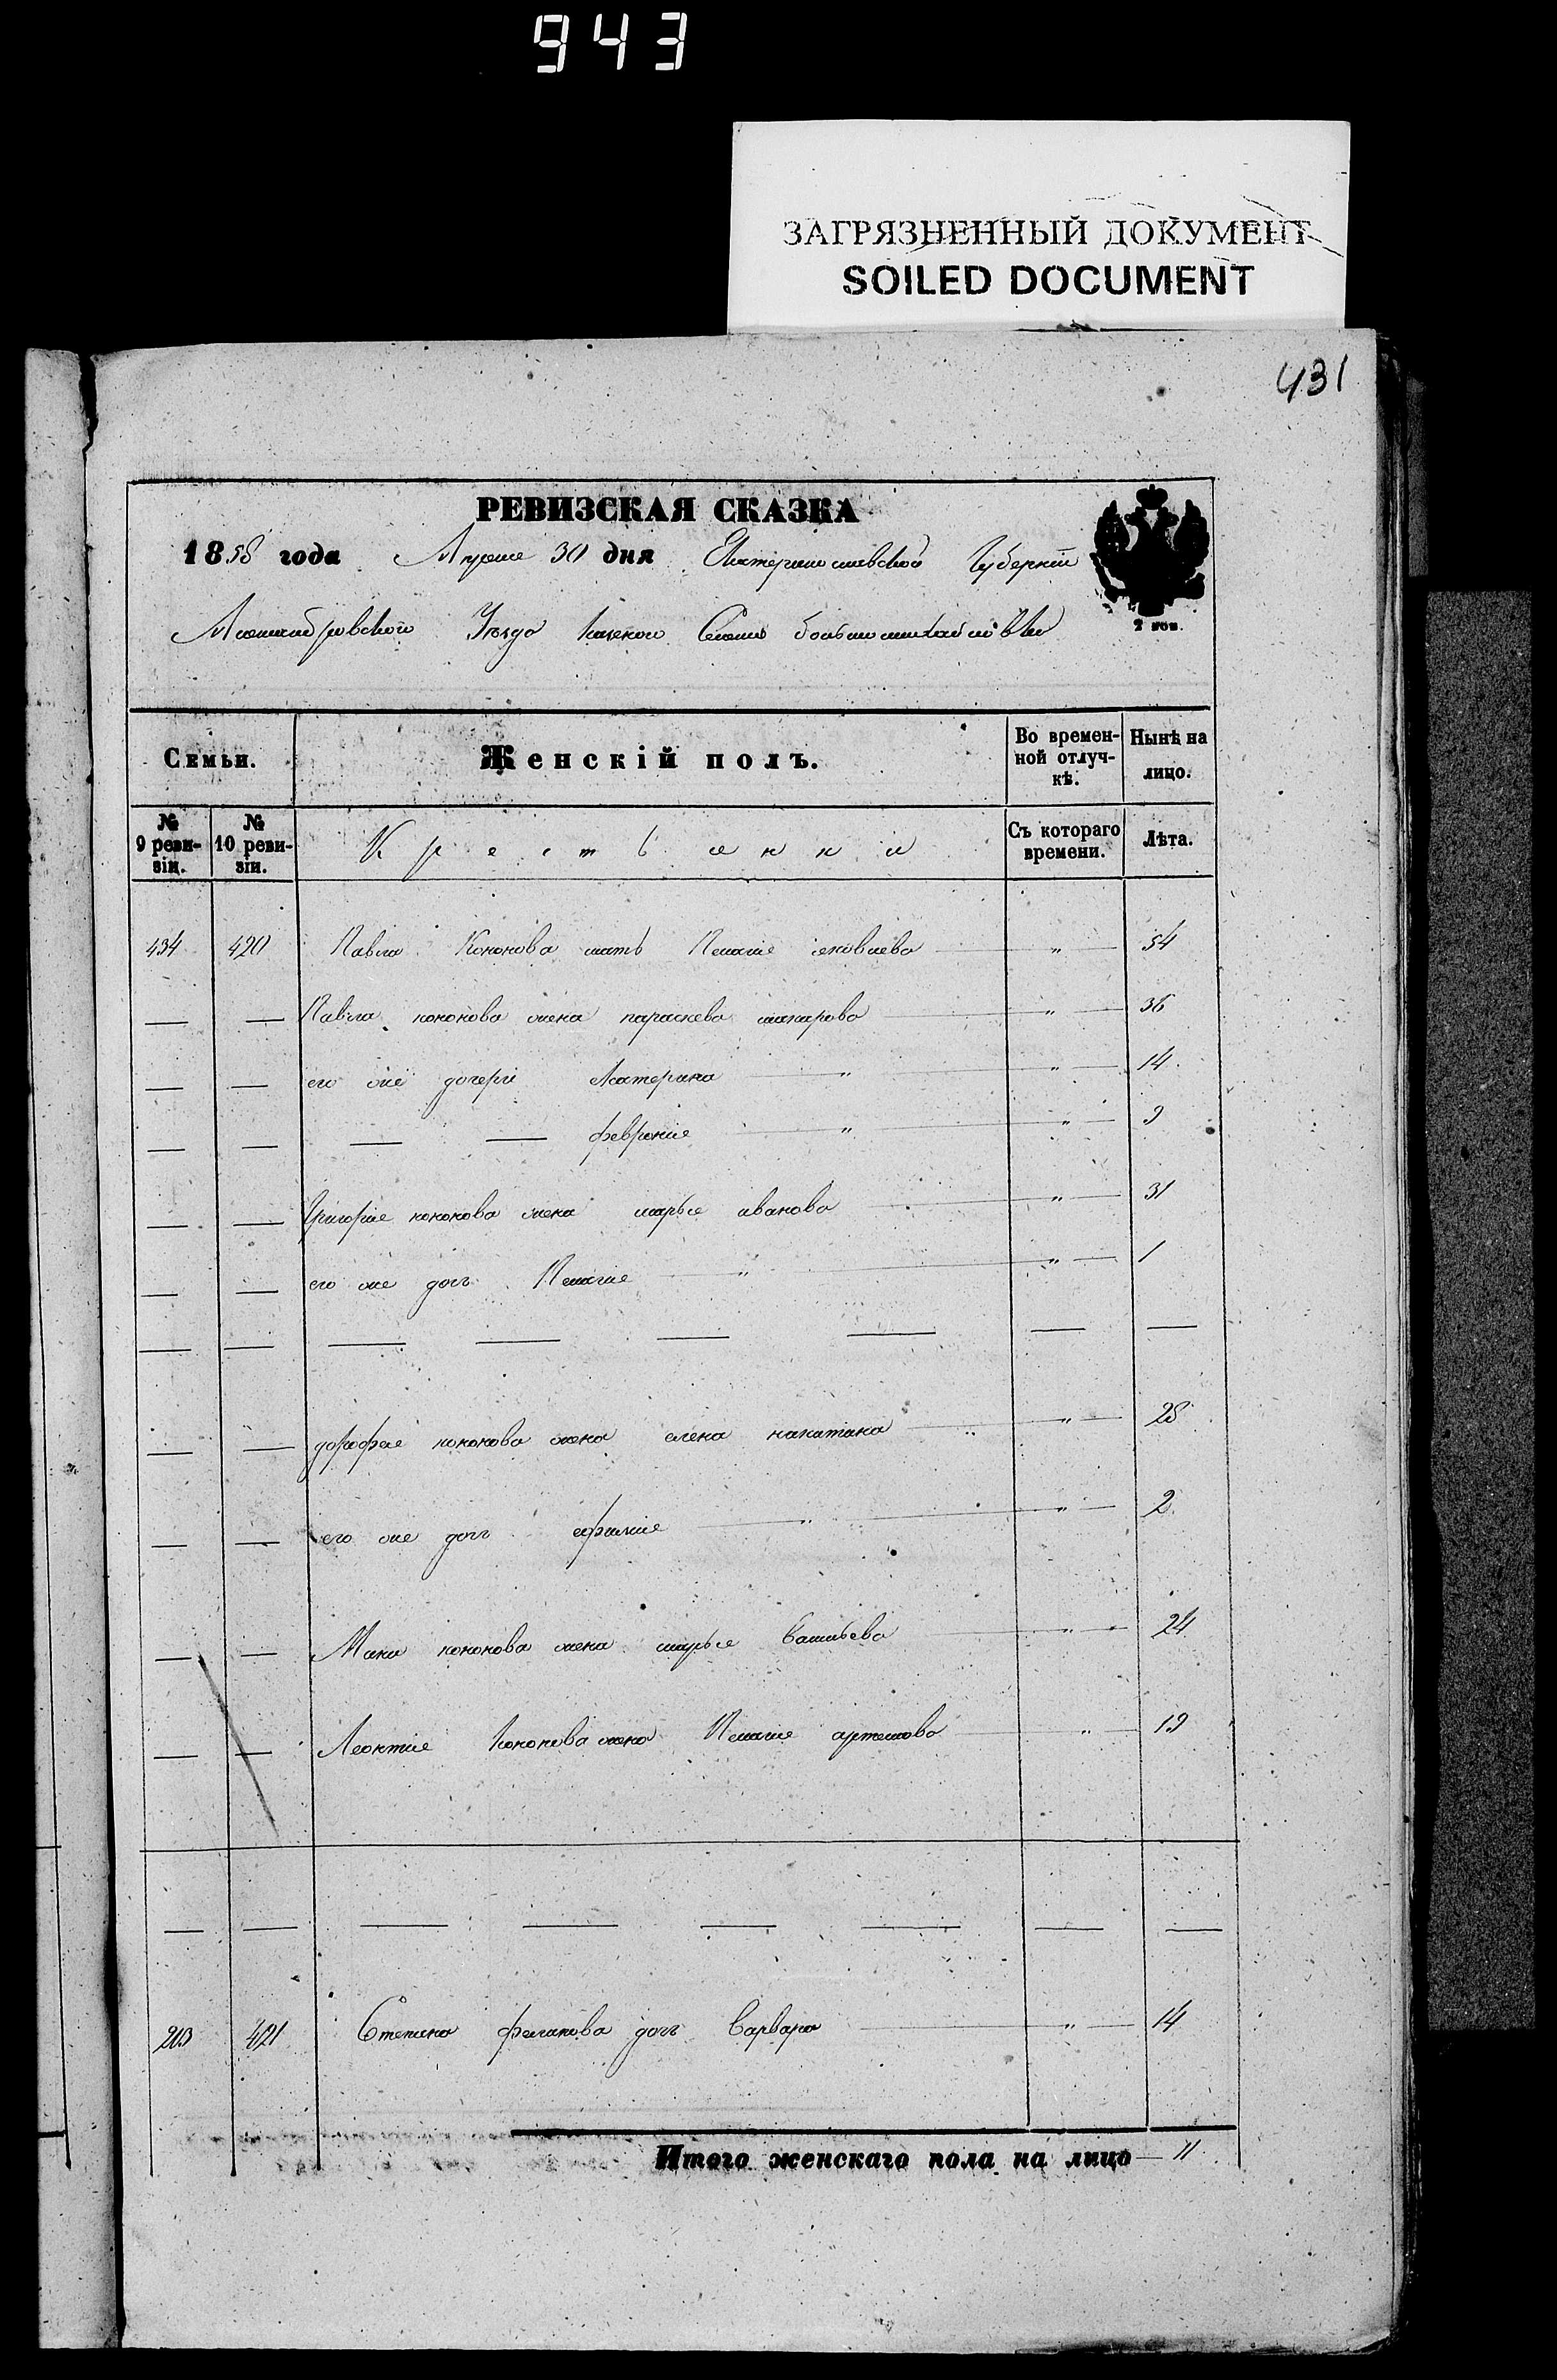 943
ЗАГРЯЗНЕННЫЙ ДОКУМЕНТ
SOILED DOCUMENT
431
РЕВИЗСКАЯ СКАЗКА
1858 года Апреля 30 дня Екатеринославской Губерніи
Александровского Уезда Села большемихайловки
2 коп.
Семьи. Женскій полъ. Во временной отлучкѣ. Нынѣ на лицо.
№ 9 ревизіи. № 10 ревизіи. Крестьянки Съ котораго времени. Лѣта.
434 420 Павла Кононова мать Пелагие яковлева — " — 54
— — Павла кононова жена параскева макарова — " — 36
— — его же дочери Катерина — " — " — 14
— — — — феврония — " — " — 9
— — Григория кононова жена марья иванова — " — 31
— — его же дочь Пелагия — " — " — 1
— — — — — — — —
— — дорофея кононова жена елена никитина — " — " — 28
— — его же дочь ефимия — " — " — 2
— — кононова жена марья васильева — " — 24
— — Леонтия Кононова жена Пелагия артемова — " — 19
— — — — — — — —
203 421 Степана дочь Варвара — " — 14
Итого женскаго пола на лицо — 11